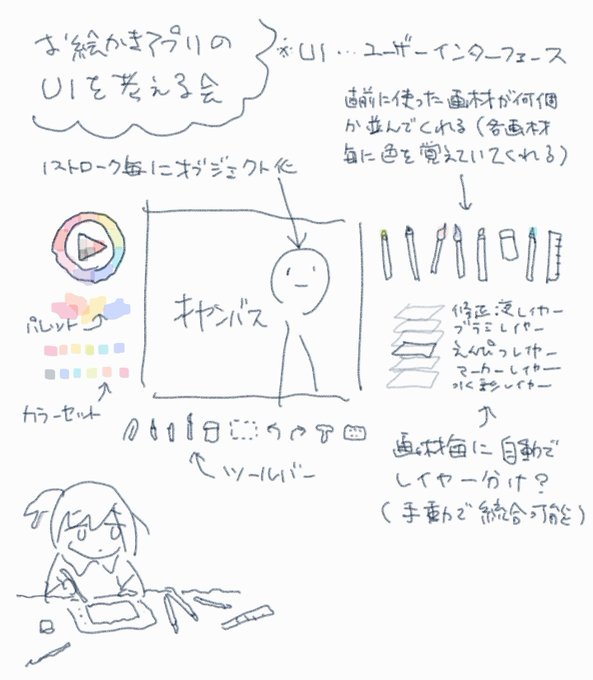 お絵かきアプリの
UIを考える会
※UI…ユーザーインターフェース
直前に使った画材が何個
か並んでくれる(各画材
毎に色を覚えていてくれる)
1ストローク毎にオブジェクト化
キャンバス
パレット
カラーセット
修正液レイヤー
ブラシレイヤー
えんぴつレイヤー
マーカーレイヤー
水彩レイヤー
ツールバー
画材毎に自動で
レイヤー分け?
(手動で統合可能)